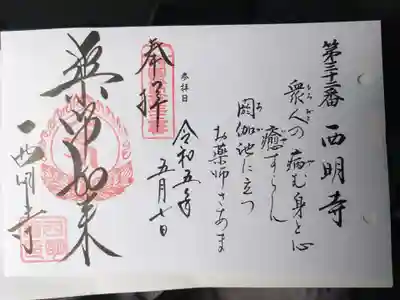 第三十二番 西明寺
衆人の病む身と心
癒すらん
閼伽池に立つ
お薬師さあま
参拝日
令和五年
五月七日
奉拝
薬師如来
西明寺